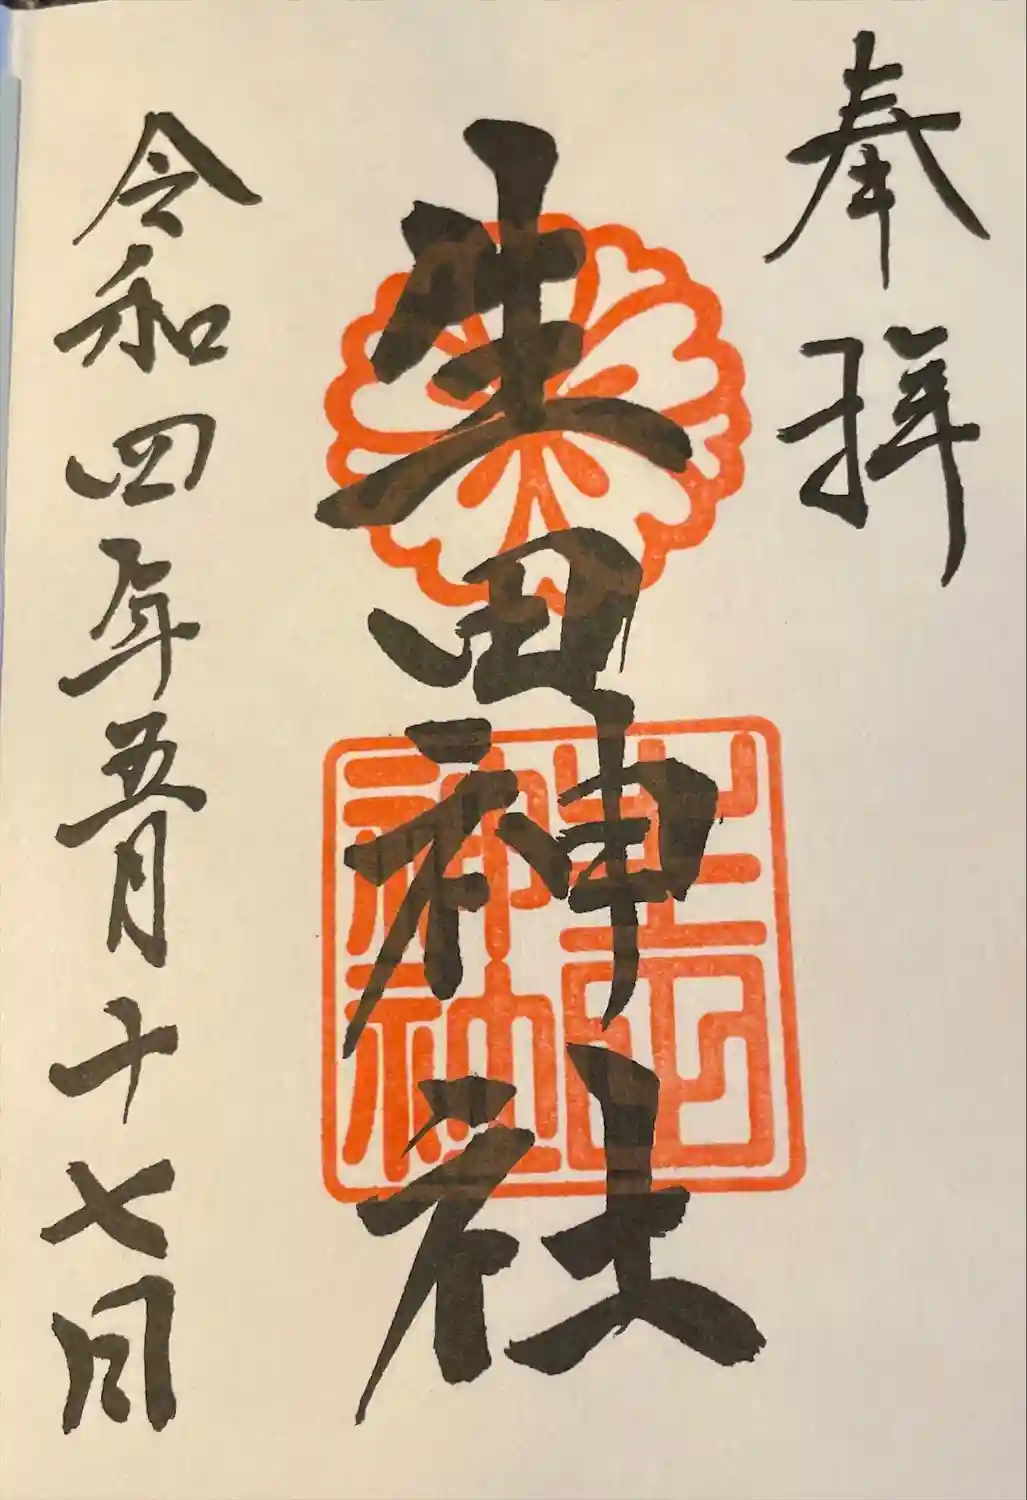 奉拝
生田神社
生田神社
令和四年五月十七日